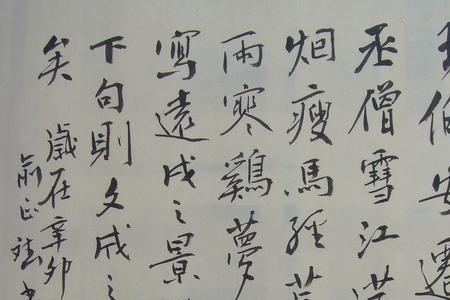 伯安遷
丞僧雪江
烟瘦馬經
雨寒鷄夢
寫遠戍之景
下句則文成之
矣
歲在辛卯